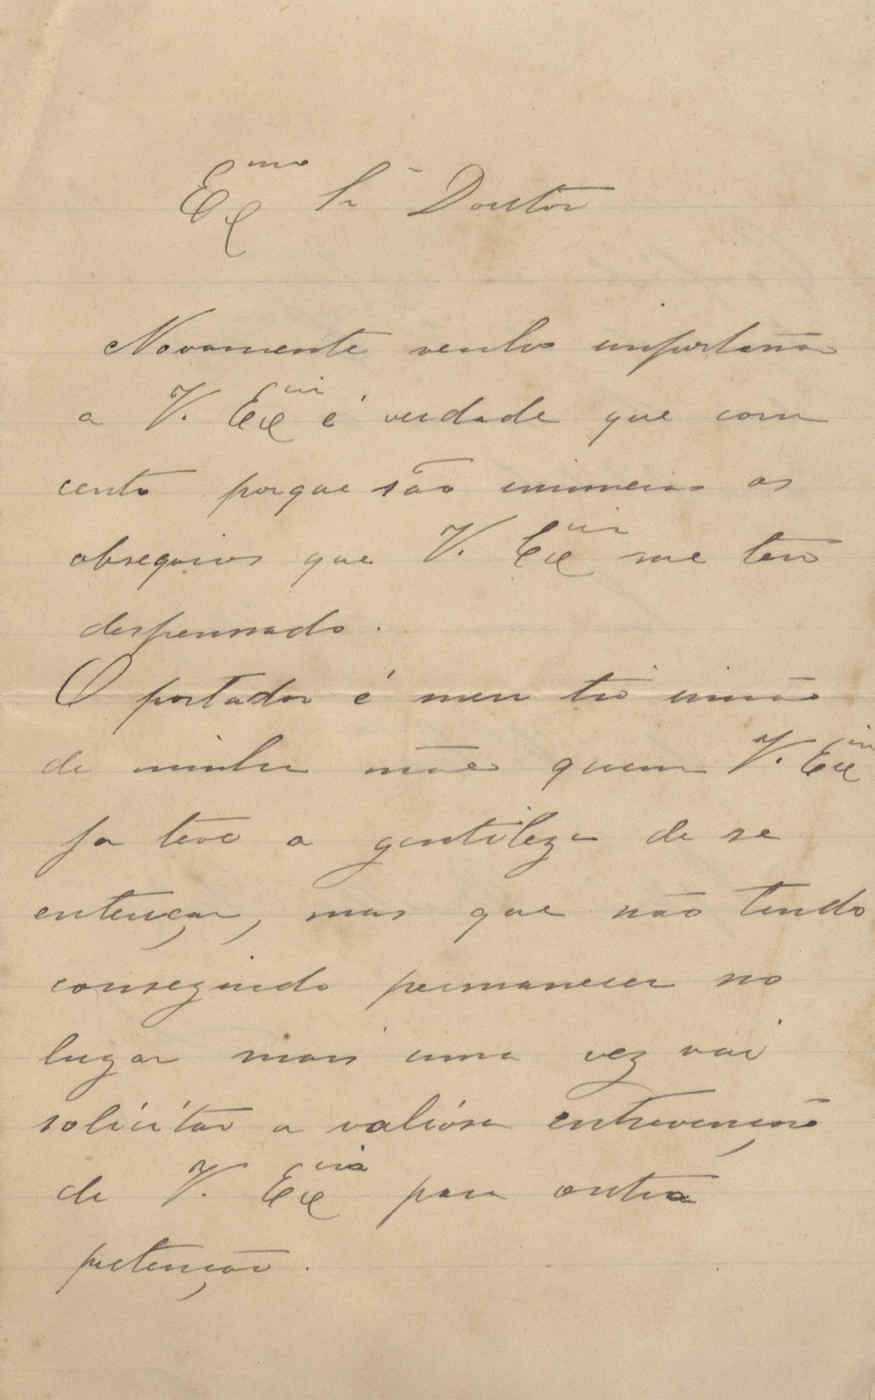 Ex.mo Sr Doutor
Novamente venho importunar
a V. Excia é verdade que com
cento porque são inumeros os
obsequios que V. Excia me tem
despensado.
O portador é meu tio irmão
de minha mãe quem V. Excia
ja teve a gentileza de se
enterçar, mas que não tendo
conseguido permanecer no
lugar mais uma vez vai
solicitar a valiosa entrevenção
de V. Excia para outra
pretenção.